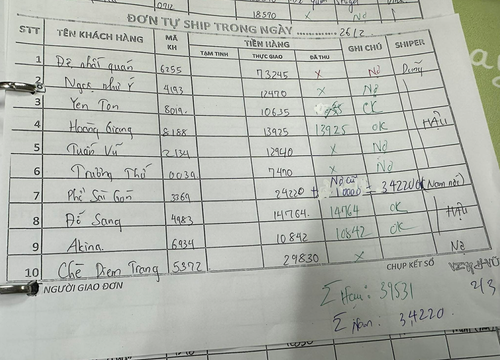 18570 x Nợ
ĐƠN TỰ SHIP TRONG NGÀY ............... 26/2
STT TÊN KHÁCH HÀNG MÃ KH TIỀN HÀNG GHI CHÚ SHIPER
TẠM TINH THỰC GIAO ĐÃ THU
1 Dê nhất quán 6255 73245 x Nợ
2 Ngọc như Ý 4193 12470 x Nợ
3 Yen Ton 8019 10635 OK
4 Hoàng Giang 8188 13925 13925 OK HẬU
5 Tuấn Vũ 2134 12940 x Nợ
6 Trường Thơ 0034 7400 x Nợ
7 Phố Sài Gòn 3369 24220 + Nợ cũ 10000 = 34220
8 Đô Sang 4983 14764 14764 OK HẬU
9 Akina 6934 10842 10842 OK
10 Chè Diem Trang 5372 29830 x Nợ
NGƯỜI GIAO ĐƠN CHỤP KẾT SỔ
Σ Hậu : 39531
Σ Nam : 34,220.